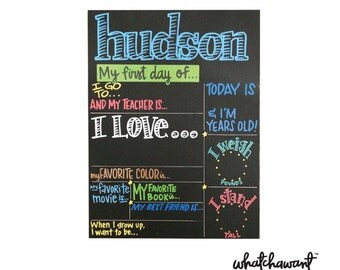 hudson
My first day of...
I GO
TO...
AND MY TEACHER IS...
I LOVE...
my FAVORITE COLOR is...
my favorite
movie is...
MY FAVORITE
BOOK is...
MY BEST FRIEND IS...
When I grow up,
I want to be...
TODAY IS
& I'M
YEARS OLD!
I weigh
Pounds
I stand
Tall
whatchawant